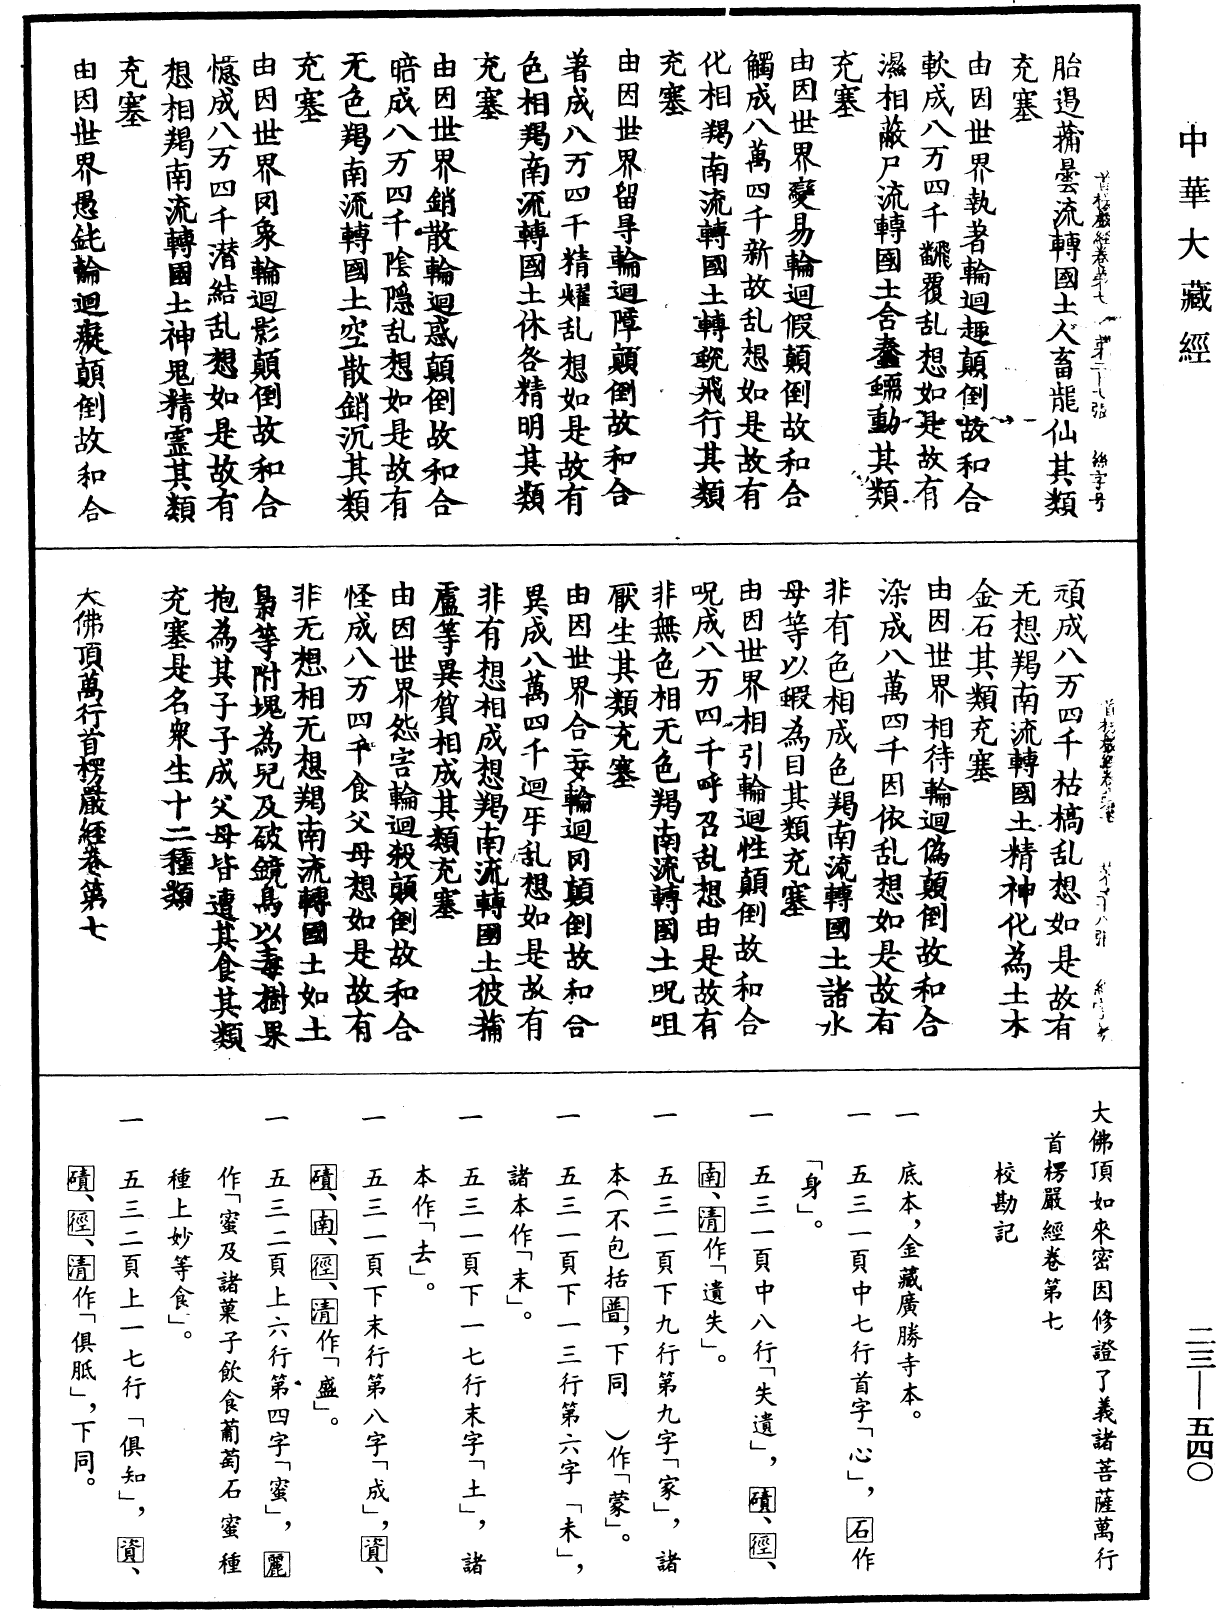 中華大藏經
胎遏蒱曇流轉國土人畜龍仙其類
充塞
由因世界執著輪迴趣顛倒故和合
軟成八万四千飜覆乱想如是故有
濕相蔽尸流轉國土含蠢蝡動其類
充塞
由因世界變易輪迴假顛倒故和合
觸成八萬四千新故乱想如是故有
化相羯南流轉國土轉蛻飛行其類
充塞
由因世界留㝵輪迴障顛倒故和合
著成八万四千精耀乱想如是故有
色相羯南流轉國土休咎精明其類
充塞
由因世界銷散輪迴惑顛倒故和合
暗成八万四千陰隐乱想如是故有
无色羯南流轉國土空散銷沉其類
充塞
由因世界罔象輪迴影顛倒故和合
憶成八万四千潛結乱想如是故有
想相羯南流轉國土神鬼精靈其類
充塞
由因世界愚鈍輪迴癡顛倒故和合
頑成八万四千枯槁乱想如是故有
无想羯南流轉國土精神化為土木
金石其類充塞
由因世界相待輪迴偽顛倒故和合
染成八萬四千因依乱想如是故有
非有色相成色羯南流轉國土諸水
母等以蝦為目其類充塞
由因世界相引輪迴性顛倒故和合
呪成八万四千呼召乱想由是故有
非無色相无色羯南流轉國土呪咀
厭生其類充塞
由因世界合妄輪迴罔顛倒故和合
異成八萬四千迴乎乱想如是故有
非有想相成想羯南流轉國土彼蒱
盧等異質相成其類充塞
由因世界怨害輪迴殺顛倒故和合
怪成八万四千食父母想如是故有
非无想相无想羯南流轉國土如土
梟等附塊為兒及破鏡鳥以毒樹果
抱為其子子成父母皆遭其食其類
充塞是名衆生十二種類
大佛頂萬行首楞嚴經卷第七
大佛頂如來密因修證了義諸菩薩萬行
首楞嚴經卷第七
校勘記
一 底本，金藏廣勝寺本。
一 五三一頁中七行首字「心」，石作
「身」。
一 五三一頁中八行「失遺」，磧、徑、
南、清作「遺失」。
一 五三一頁下九行第九字「家」，諸
本（不包括普，下同 ）作「蒙」。
一 五三一頁下一三行第六字「未」，
諸本作「末」。
一 五三一頁下一七行末字「土」，諸
本作「去」。
一 五三一頁下末行第八字「成」，資、
磧、南、徑、清作「盛」。
一 五三二頁上六行第四字「蜜」，麗
作「蜜及諸菓子飲食葡萄石蜜種
種上妙等食」。
一 五三二頁上一七行「俱知」，資、
磧、徑、清作「俱胝」，下同。
二三—五四〇